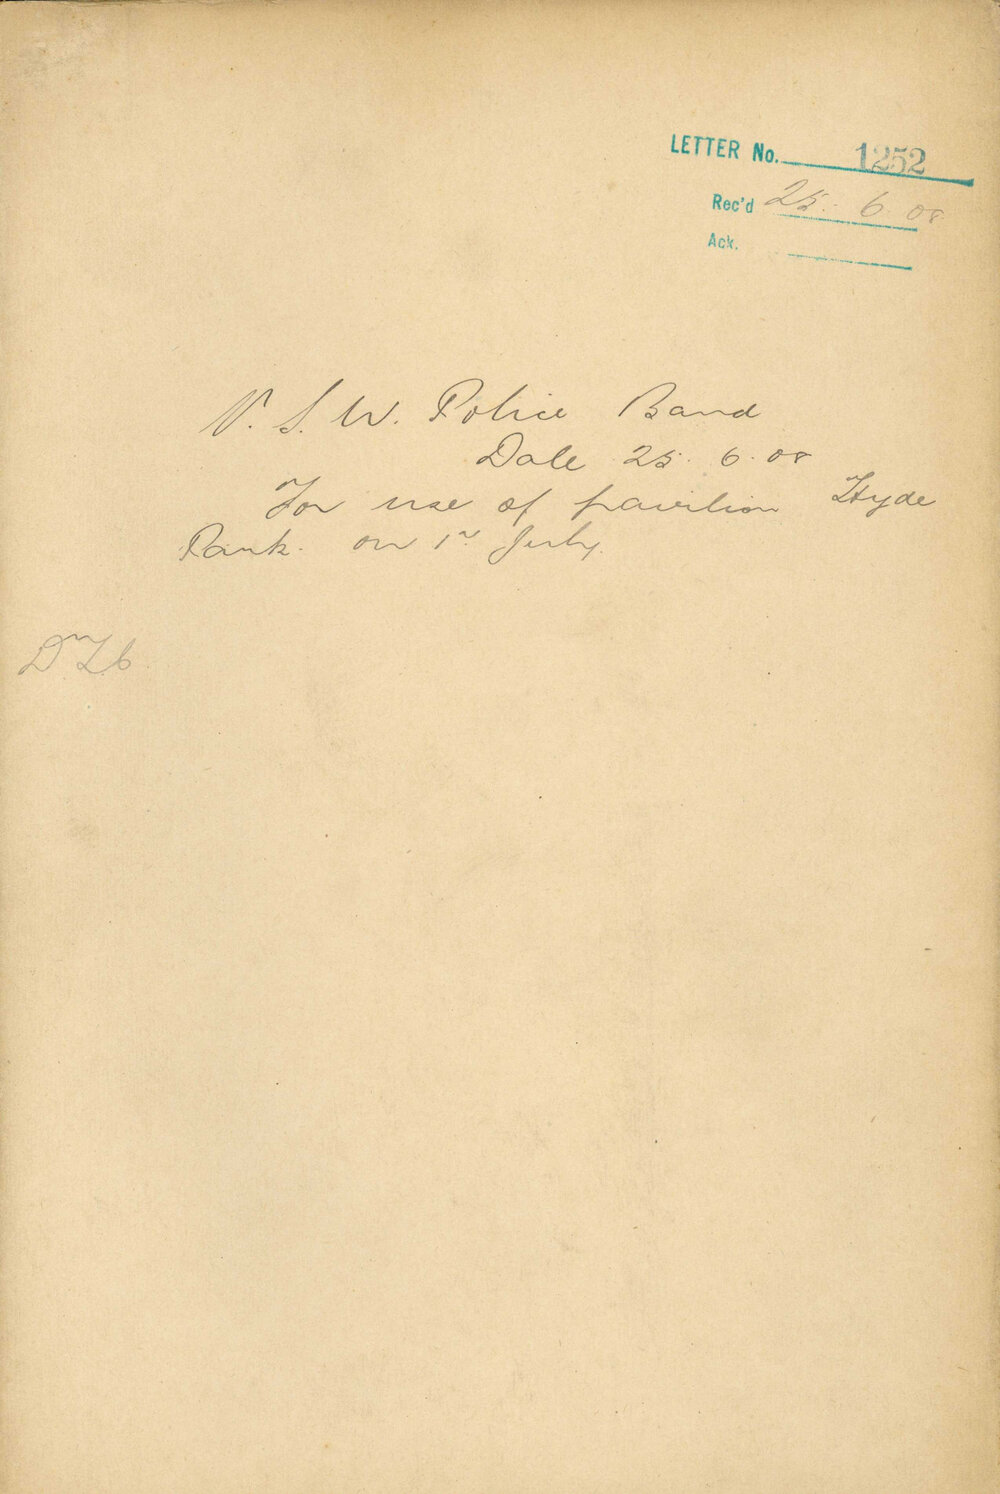 LETTER No. 1252
Rec'd 25. 6 08
Ack.
N. S. W. Police Band
Date 25. 6. 08
For use of pavilion Hyde
Park. on 1st July.